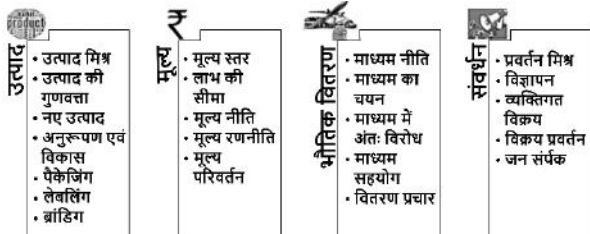 product
उत्पाद
• उत्पाद मिश्र
• उत्पाद की
गुणवत्ता
• नए उत्पाद
• अनुरूपण एवं
विकास
• पैकेजिंग
• लेबलिंग
• ब्रांडिग
₹
मूल्य
• मूल्य स्तर
• लाभ की
सीमा
• मूल्य नीति
• मूल्य रणनीति
• मूल्य
परिवर्तन
भौतिक वितरण
• माध्यम नीति
• माध्यम का
चयन
• माध्यम में
अंतः विरोध
• माध्यम
सहयोग
• वितरण प्रचार
संवर्धन
• प्रवर्तन मिश्र
• विज्ञापन
• व्यक्तिगत
विक्रय
• विक्रय प्रवर्तन
• जन संर्पक